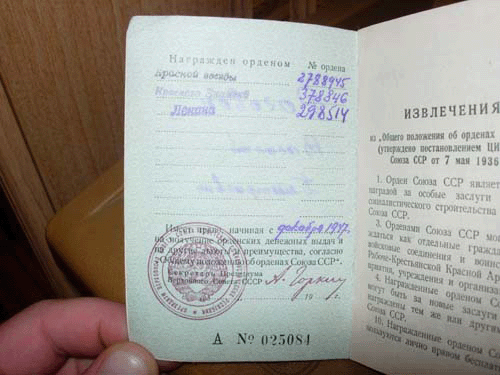 Награжден орденом № ордена
Красной звезды 2788945
Красного Знамени 378846
Ленина 298514
Имеет право, начиная с декабря 1947.
на получение орденских денежных выдач и
на другие льготы и преимущества, согласно
„Общему положению об орденах Союза ССР“.
Секретарь Президиума
Верховного Совета СССР А. Горкин
19 г.
А № 025084
ИЗВЛЕЧЕНИЯ
из „Общего положения об орденах
(утверждено постановлением ЦИ
Союза ССР от 7 мая 1936
1. Орден Союза ССР является
наградой за особые заслуги
социалистического строительства
Союза ССР.
2. Орденами Союза ССР мо
ждаться как отдельные граждан
войсковые соединения и воинс
Рабоче-Крестьянской Красной Ар
приятия, учреждения и организаци
4. Награжденные орденом С
могут быть за новые заслуги
награждены тем же или други
Союза ССР.
10. Награжденные орденом Сою
пользуются лично правом бесплат